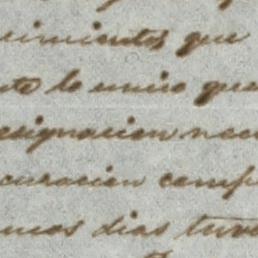 imientos que
nte lo unico que
esignacion nec
curacion comp
unos dias tuve